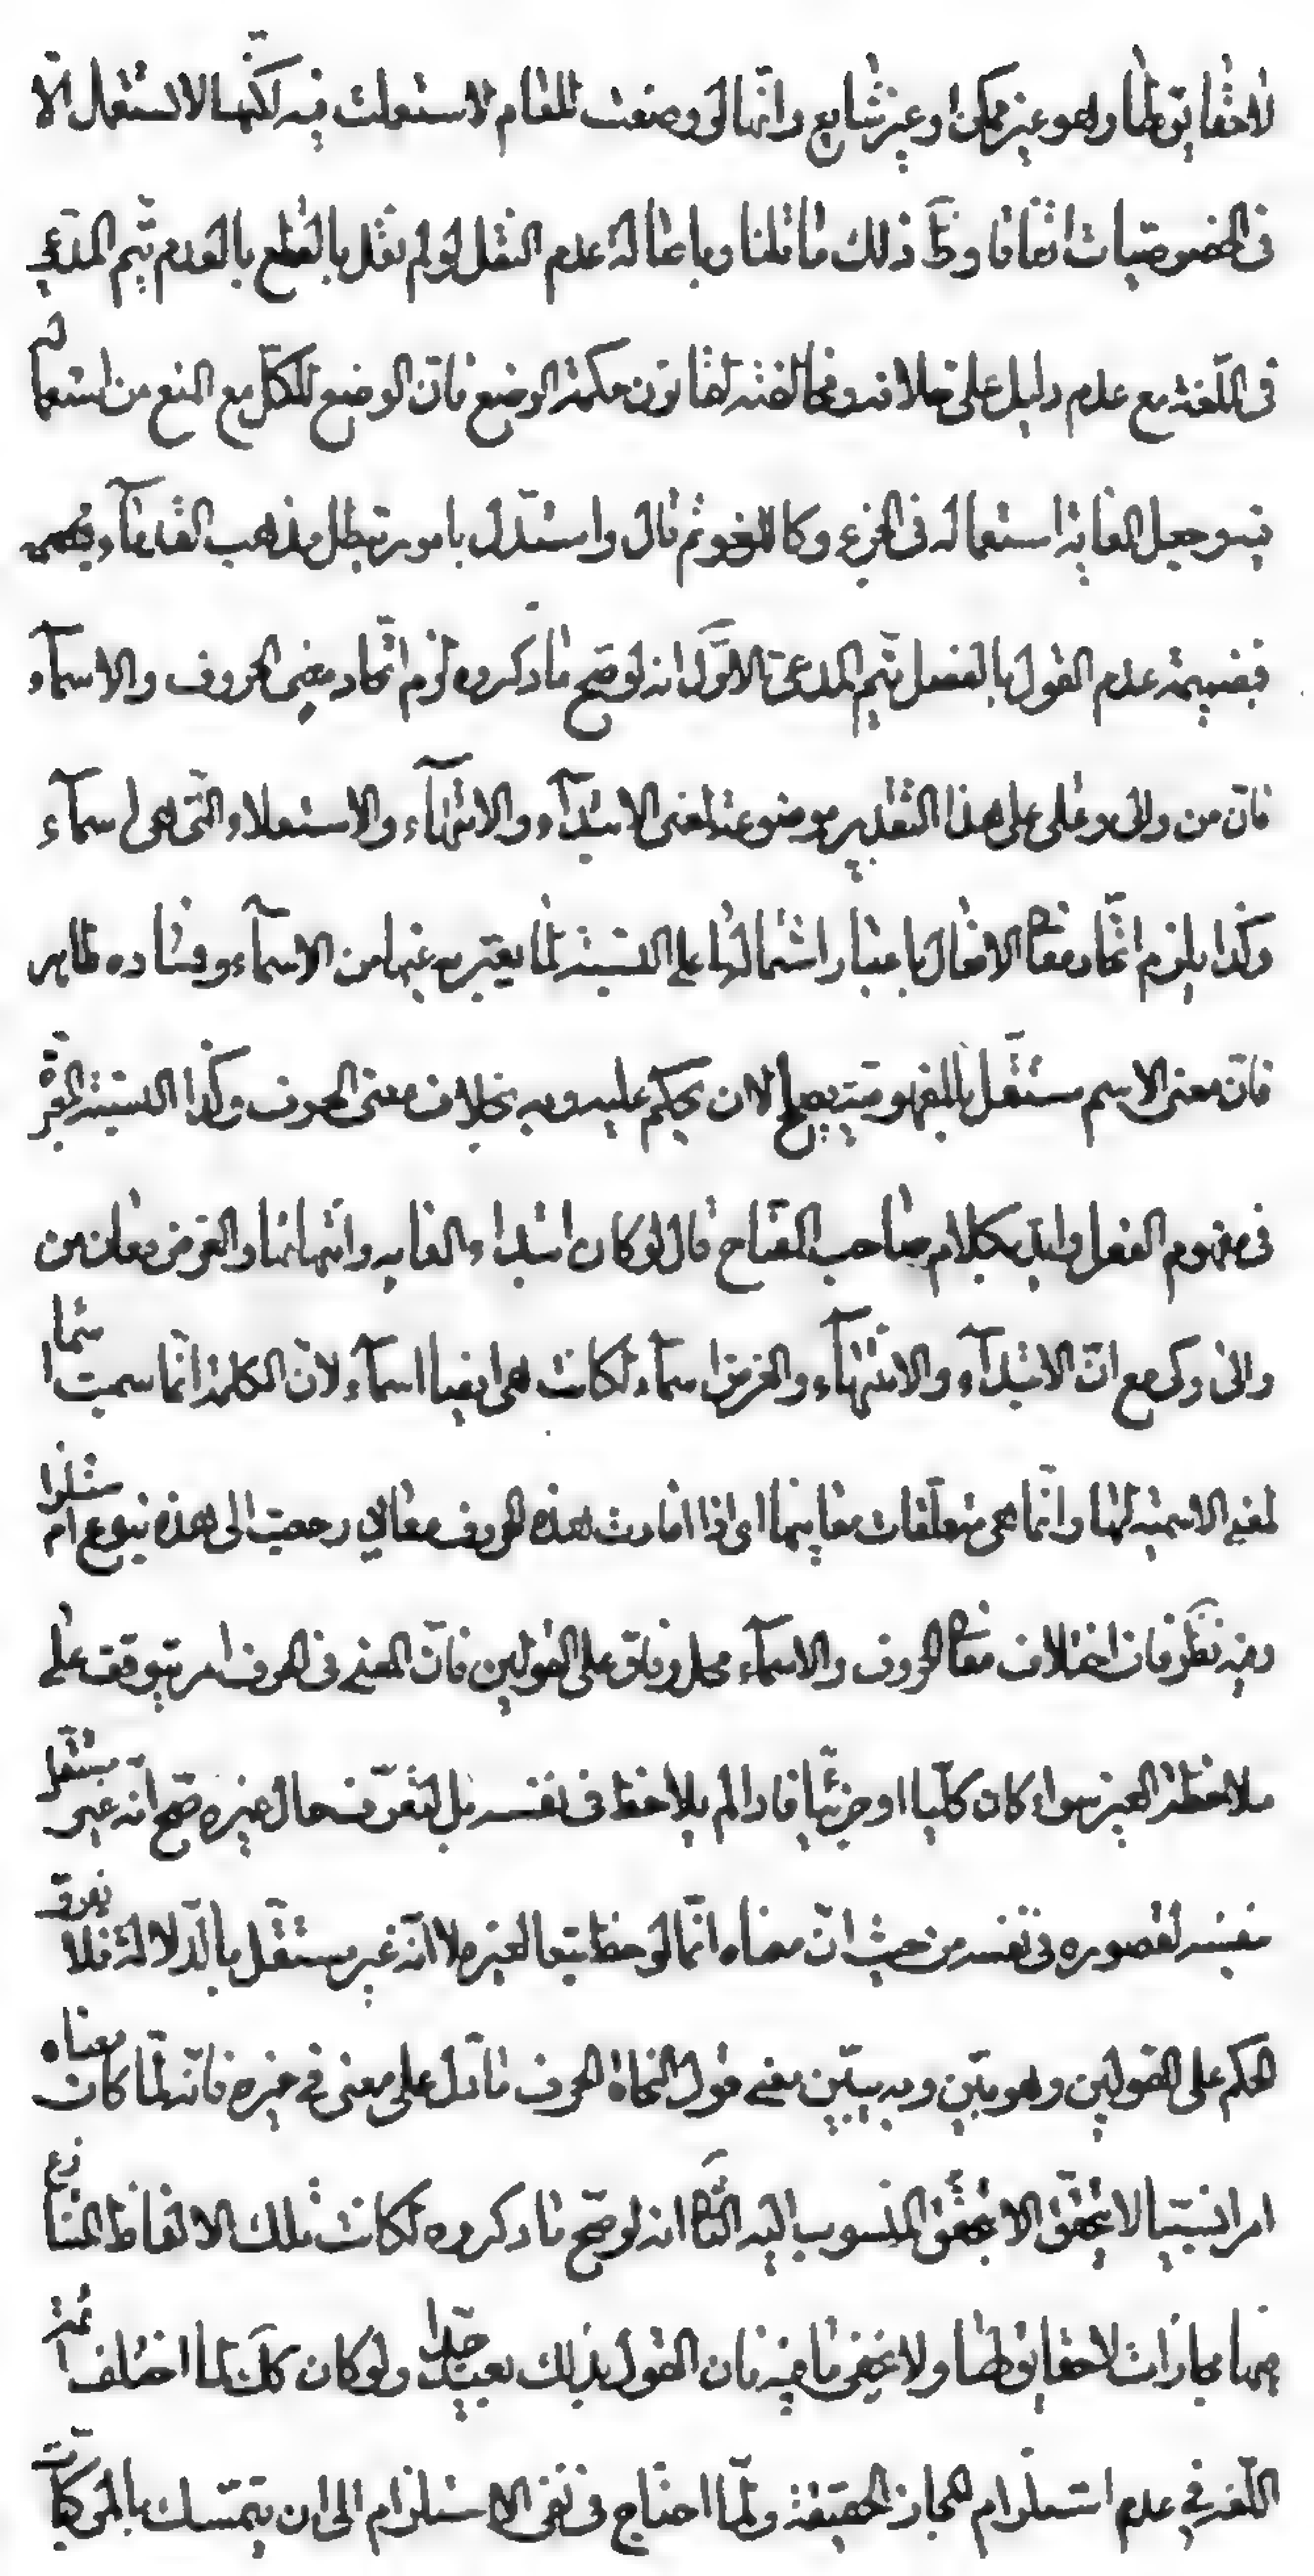 لا حقايق لها وهو غير ممكن او غير شايع وانها لو وضعت للعام لاستعملت فيه لكنها لا لا تستعمل الا
فى الخصوصيات اتفاقا وظ ذلك ما تلنا وباصالة عدم النقل لو لم نقل بالقطع بالعدم يتم المدعى
فى اللغة مع عدم دليل على خلافه ومخالفته لقانون حكمة الوضع فان الوضع للكل مع المنع من استعماله
فيه وجعل الغاية استعماله فى الجزئى وكاللغو ثم قال واستدل بامور تبطل مذهب القدماء
فبضميمة عدم القول بالفصل يتم المدعى الاول انه لو صح ما ذكروه لزم اتحاد معنى الحروف والاسماء
فان من والى وعلى على هذا التقدير موضوعة لمعنى الابتداء والانتهاء والاستعلاء التى هى اسماء
وكذا يلزم اتحاد معا الافعال باعتبار اشتمالها على النسبة لما يعتبر به عنها من الاسماء وفساده ظاهر
فان معنى الاسم مستقل بالمفهومية يصلح لان يحكم عليه وبه بخلاف معنى الحرف وكذا النسبة المعتبرة
فى مفهوم الفعل وايد بكلام صاحب المفتاح قال لو كان ابتداء الغايه وانتهائها والغرض معان من
والى وكى مع ان الابتداء والانتهاء والغرض اسماء لكانت هى ايضا اسماء لان الكلمة انما سميت اسما
لمعنى الاسمية لها وانما هى متعلقات معانيها اى اذا افادت هذه الحروف معانى رجعت الى هذه بنوع استلزام
وفيه نظر فان اختلاف معا الحروف والاسماء محل وفاق على القولين فان المعنى فى الحرف امر يتوقف على
ملاحظة الغير سواء كان كليا او جزئيا فاذا لم يلاحظ فى نفسه بل لتعرف حال غيره صح انه غير مستقل
بنفسه لقصوره فى نفسه من حيث ان معناه انما لوحظ تبعا لغيره لا انه غير مستقل بالدلالة فلا تفرق
الحكم على القولين وهو بين وبه يتبين معنى قول النحاة الحرف ما دل على معنى فى غيره فانه لما كان معناه
امرا نسبيا لا يتحقق الا بتحقق المنسوب اليه الثا انه لو صح ما ذكروه لكانت تلك الالفاظ المتنازع
فيها مجازات لا حقايق لها ولا يخفى ما فيه فان القول بذلك بعيد جدا ولو كان كك لما اختلف ائمة
اللغة فى عدم استلزام المجاز الحقيقة ولما احتاج فى نفى الاستلزام الى ان يتمسك بالمركبات